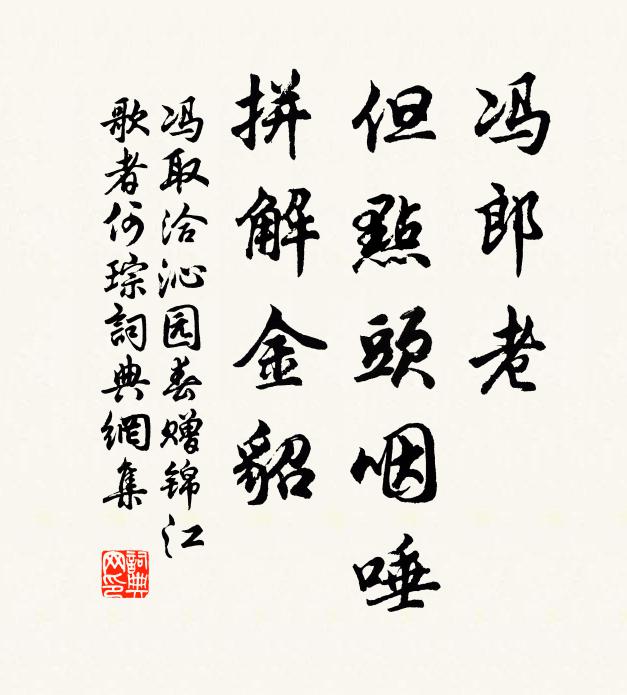 冯郎老
但點頭咽唾
拼解金貂
冯取洽沁园春赠锦江
歌者何琮詞典網集
詞典网印